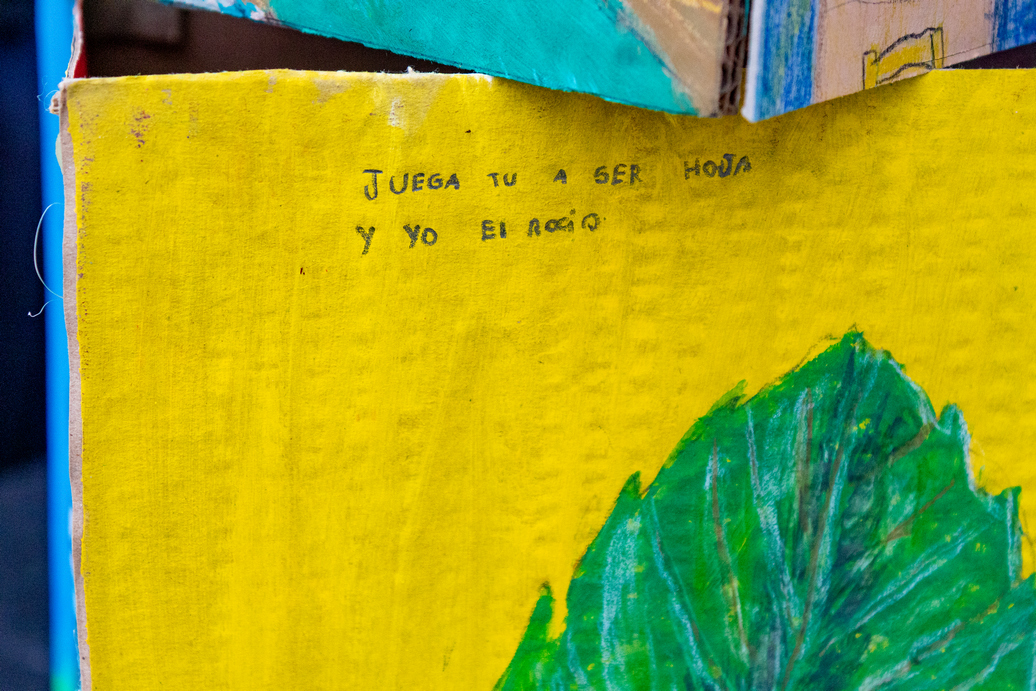 JUEGA TU A SER HOJA
Y YO El ROCíO